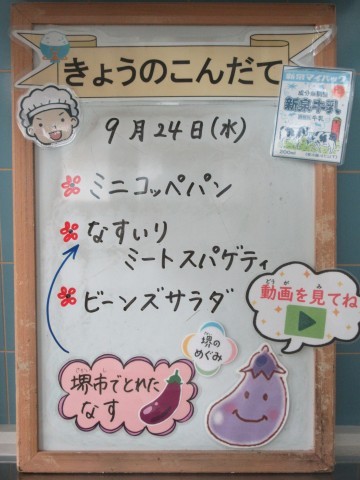 きょうのこんだて
成分無調整
新泉牛乳
200ml
9月24日(水)
ミニコッペパン
なすいり
ミートスパゲティ
ビーンズサラダ
どうが み
動画を見てね
堺の
めぐみ
堺市でとれた
なす